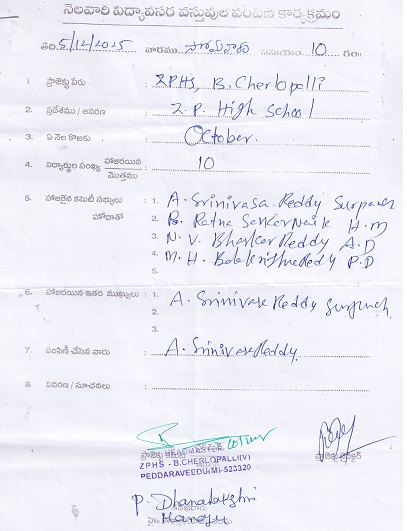 నెలవారి విద్యావసర వస్తువుల పంపిణి కార్యక్రమం
తేది: 5/12/2015 వారము సోమవారం సమయం 10 గం॥
1 ప్రాజెక్టు పేరు : ZPHS, B. Cherlopalli
2. ప్రదేశము / ఆవరణ : Z.P. High School
3. ఏ నెల కొఱకు : October.
4. విద్యార్థుల సంఖ్య హాజరయిన / మొత్తము : 10
5. హాజరైన కమిటీ సభ్యులు : 1. A. Srinivasa Reddy Surpanch
హోదాతో 2. B. Ratna Sankar Naik H.M
3. N. V. Bhaskar Reddy A.D
4. M. H. Balakrishna Reddy P.D
5.
6. హాజరయిన ఇతర ముఖ్యులు : 1. A. Srinivasa Reddy Surpanch.
2.
3.
7. పంపిణీ చేసిన వారు : A. Srinivasa Reddy.
8. వివరణ / సూచనలు :
HEADMASTER
ZPHS - B.CHERLOPALLI(V)
PEDDARAVEEDU(M)-523320
P. Dhanalakshmi